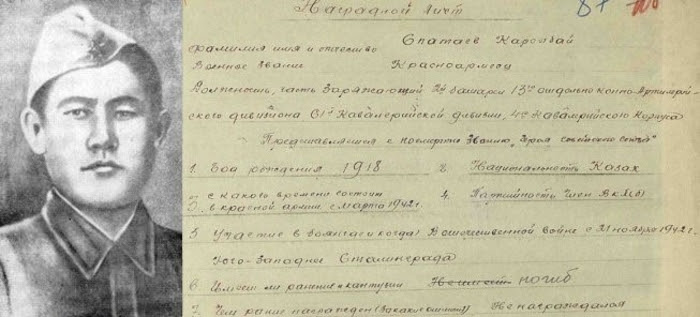 Наградной Лист
Фамилия имя и отчество Спатаев Карсыбай
Военное звание Красноармеец
Должность, часть Заряжающий 2й батареи 13го отдельно конно-Артиллерий-
ского дивизиона 81й Кавалерийской дивизии, 4го Кавалерийского Корпуса
Представляется к посмертно званию "Героя советского союза"
1. Год рождения 1918 3. Национальность Казах
с какого времени состоит
5. в красной армии с марта 1942 г. 4. Партийность Член ВКП(б)
5 Участие в боях (где и когда) В отечественной войне с 21 ноября 1942 г.
Юго-Западнее Сталинграда
6 Имеет ли ранения и контузии погиб
7. Чем ранее награжден Не награждался